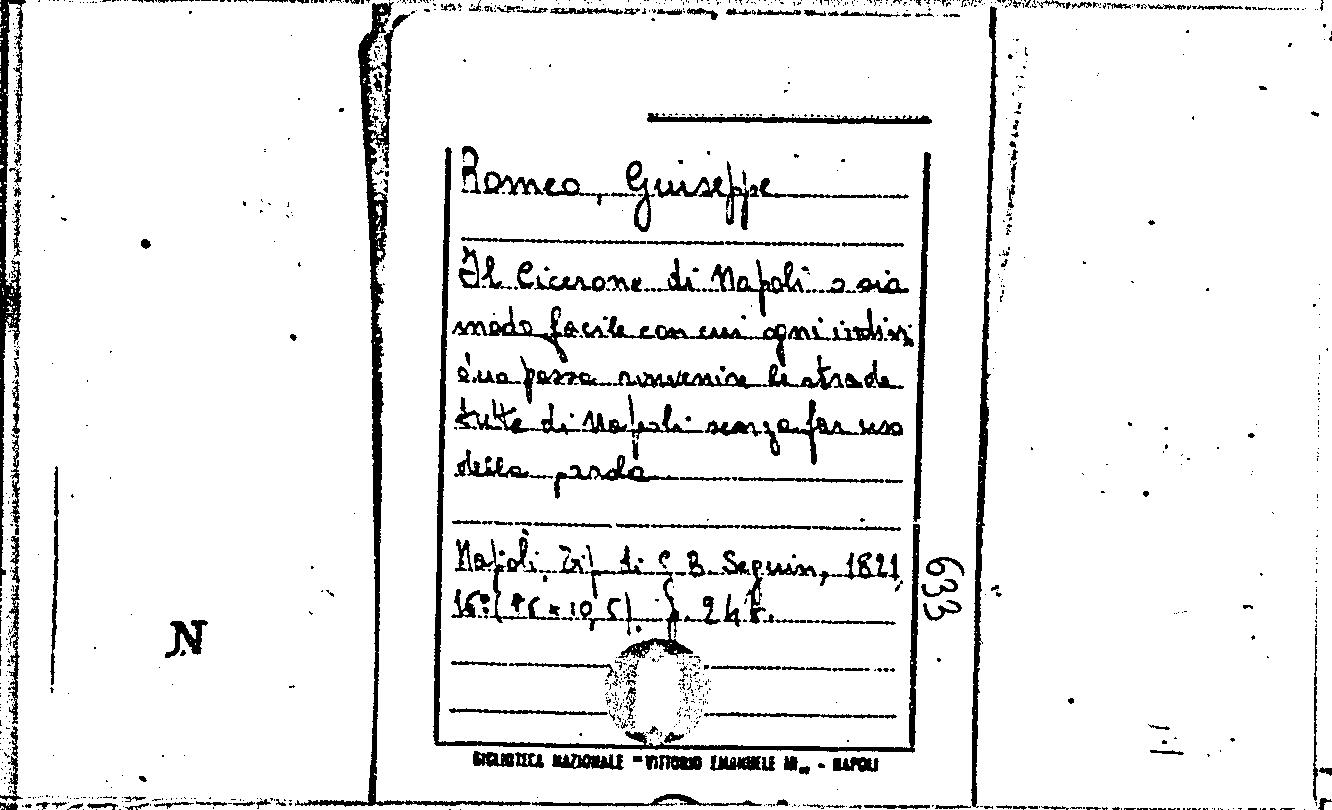 Romeo, Giuseppe
Il Cicerone di Napoli o sia
modo facile con cui ogni indivi
duo possa rinvenire le strade
tutte di Napoli senza far uso
della parola
Napoli, Tip. di G. B. Seguin, 1821,
16° ( x 10,5). p. 247.
633
N
BIBLIOTECA NAZIONALE "VITTORIO EMANUELE III" - NAPOLI